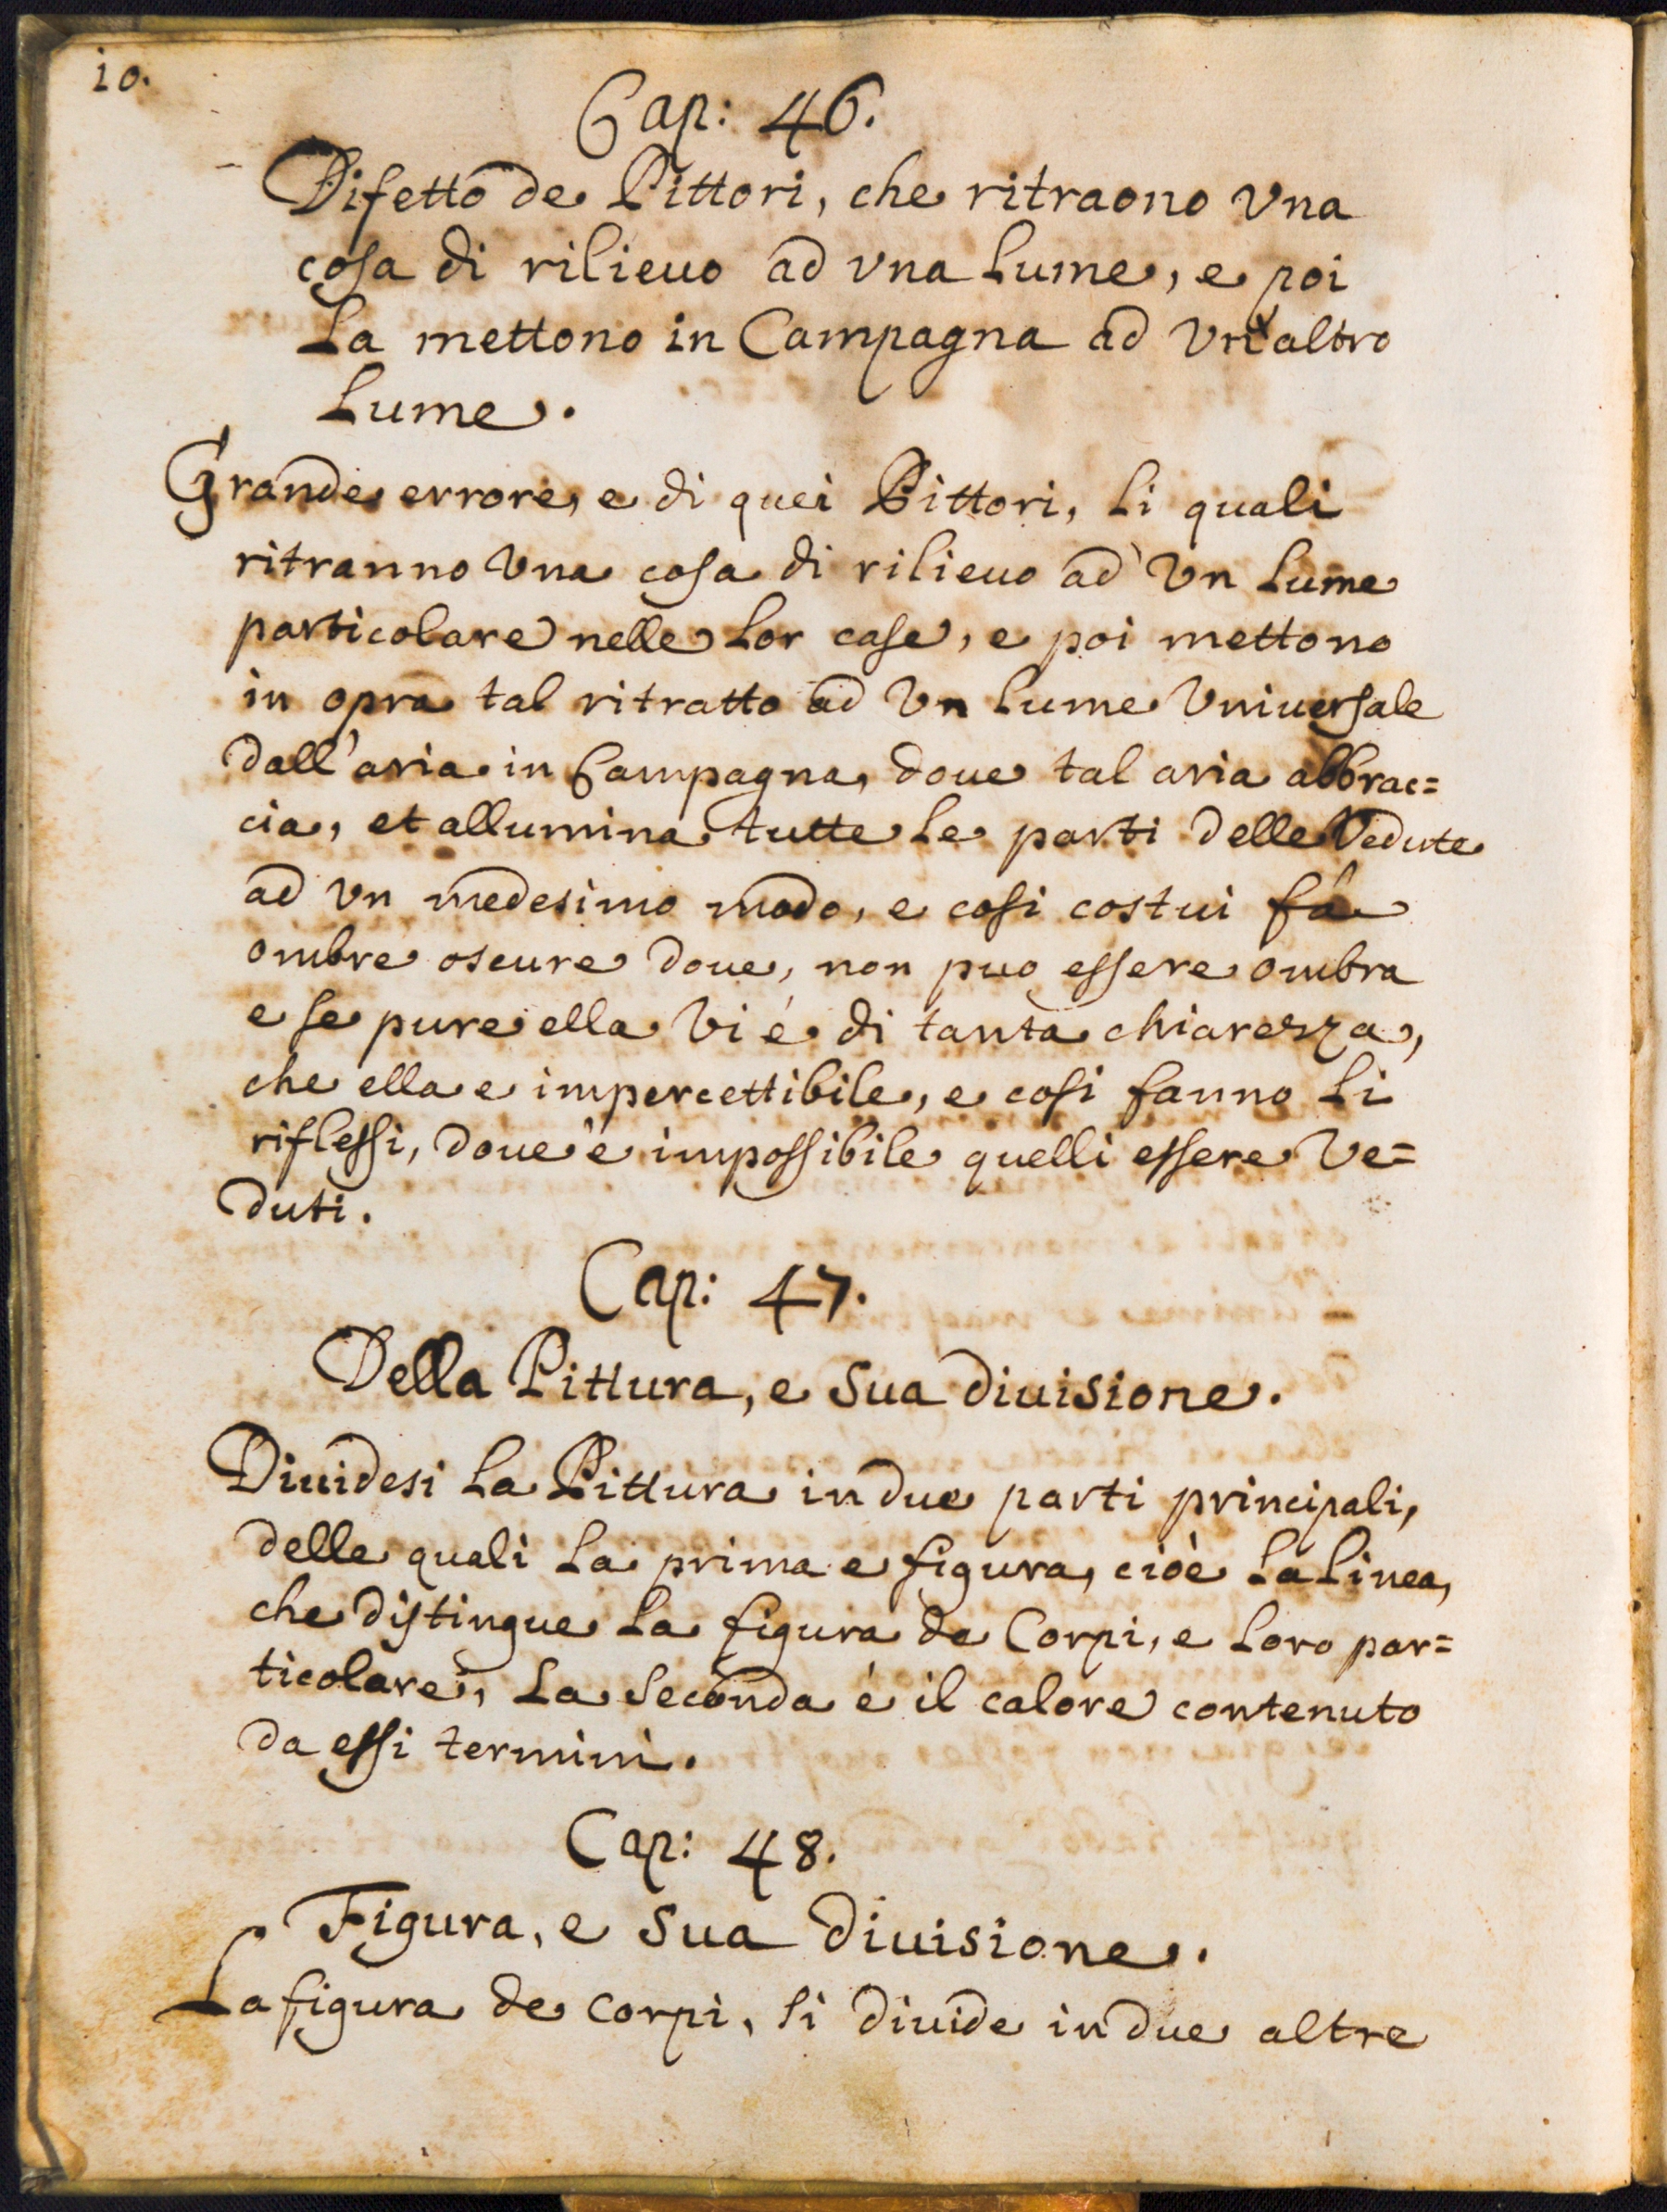 10.
Cap: 46.
Difetto de Pittori, che ritraono Vna
cosa di rilieuo ad vna Lume, e poi
La mettono in Campagna ad Vn'altro
Lume.
Grande errore, e di quei Pittori, Li quali
ritranno Vna cosa di rilieuo ad Vn Lume
particolare nelle Lor case, e poi mettono
in opra tal ritratto ad Vn Lume Vniuersale
dall'aria in Campagna, doue tal aria abbrac=
cia, et allumina tutte Le parti delle Vedute
ad vn medesimo modo, e cosi costui fà
ombre oscure doue, non puo essere ombra
e se pure ella Vi é di tanta chiarezza,
che ella e impercettibile, e cosi fanno Li
riflessi, doue è impossibile quelli essere Ve=
duti.
Cap: 47.
Della Pittura, e Sua diuisione.
Diuidesi La Pittura in due parti principali,
delle quali La prima e figura, cioè La Linea,
che distingue La figura de Corpi, e Loro par=
ticolare, La Seconda é il calore contenuto
da essi termini.
Cap: 48.
Figura, e Sua Diuisione.
La figura de Corpi, Si diuide in due altre